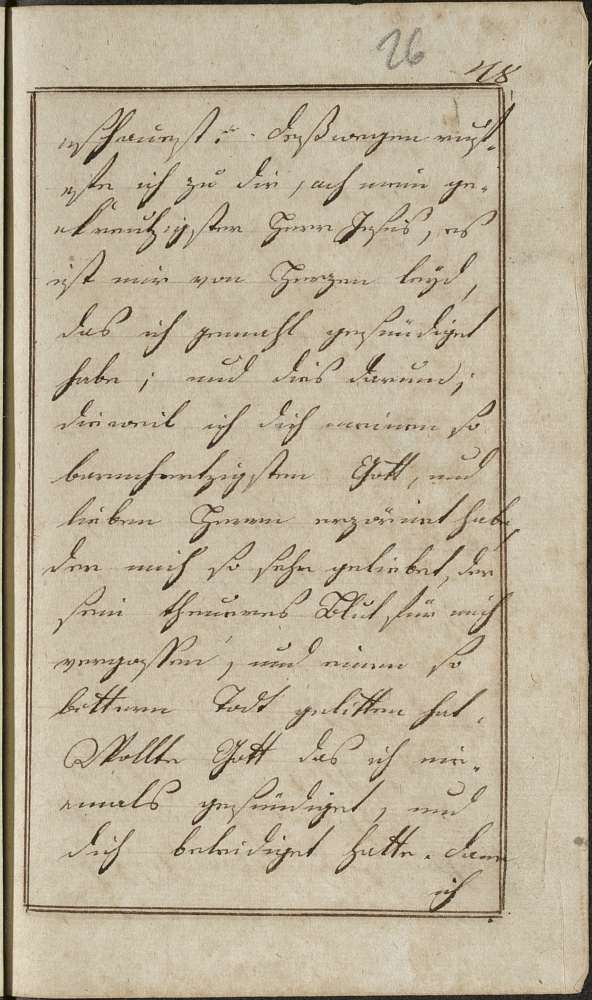 26
48
erschauest. Deßwegen ruf-
effe ich zu dir, ach mein ge-
ekreutzigster Herr Jesus, es
ist mir von Herzen leyd,
das ich jemahl gesündiget
habe; und dies darum;
dieweil ich dich meinen so
barmhertzigsten Gott, und
lieben Herrn erzörnet habe,
der mich so sehr geliebet, der
sein theueres Blut für mich
vergossen, und einen so
bittern Todt gelitten hat.
Wollte Gott das ich nie-
emals gesündiget, und
dich beleidiget hatte. Dann
ich